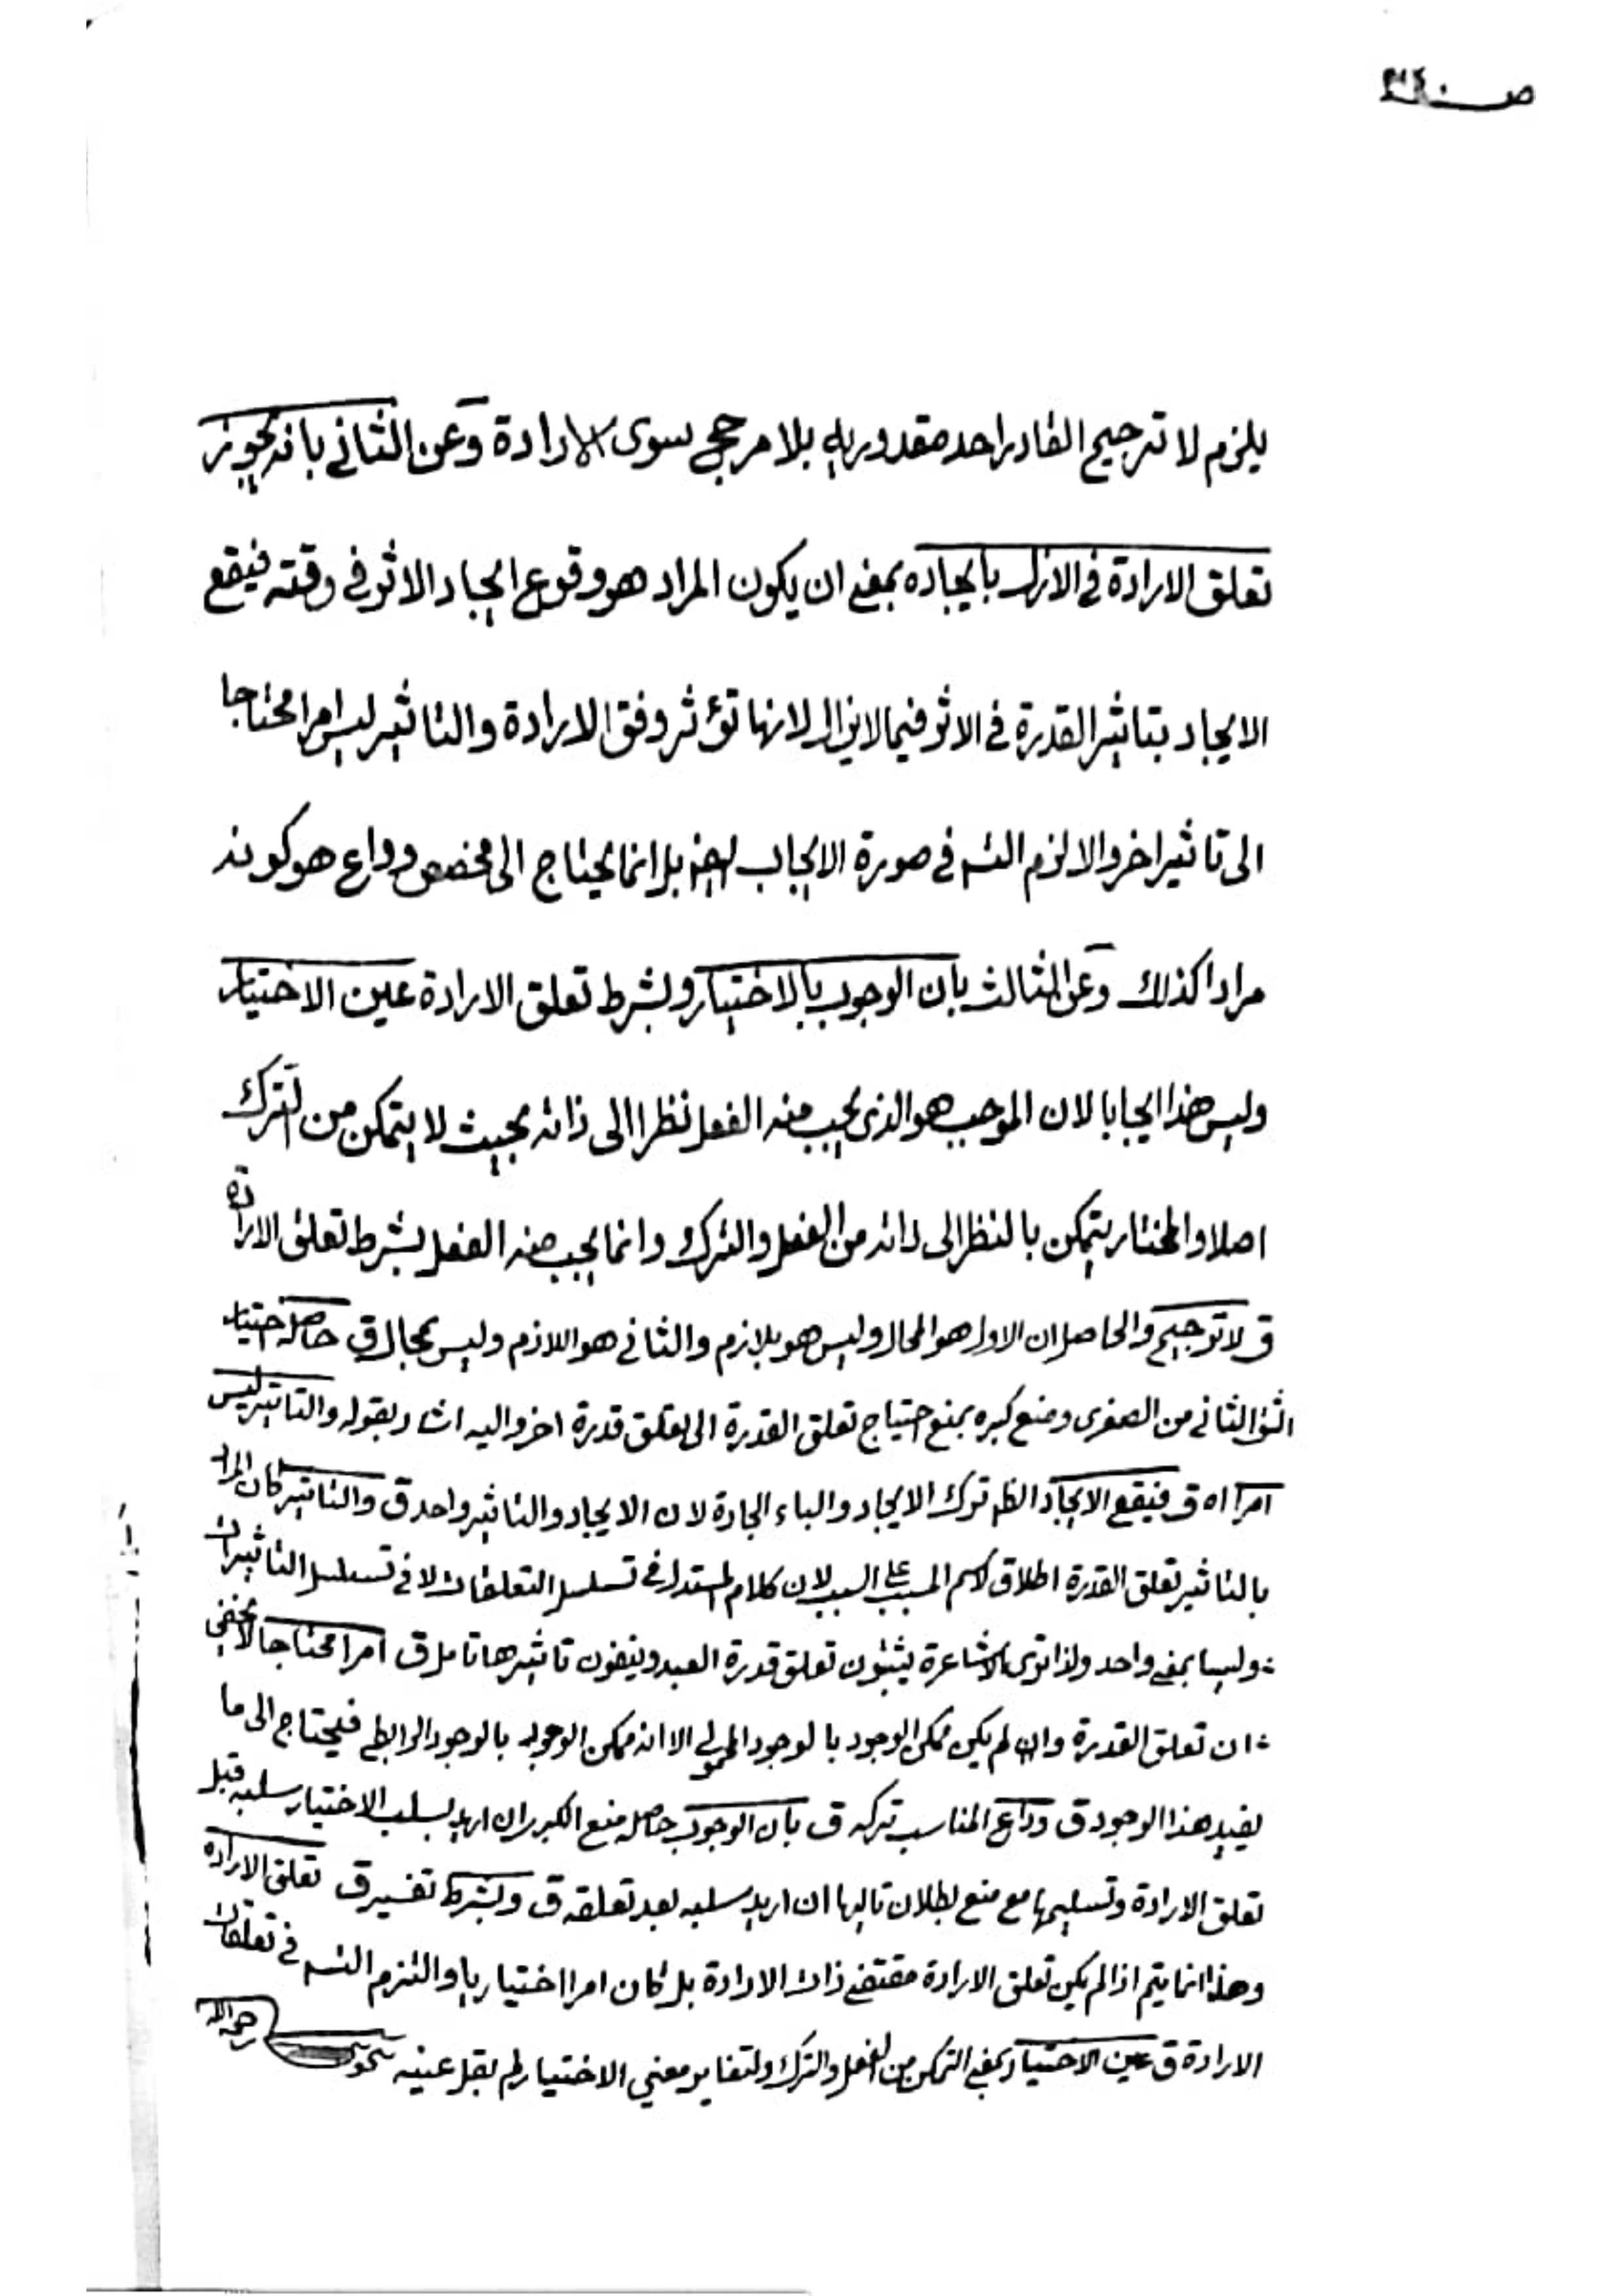 يلزم لا ترجيح القادر احد مقدوريه بلا مرجح سوى الارادة وعن الثاني بانه يجوز
تعلق الارادة في الازل بايجاده بمعنى ان يكون المراد هو وقوع ايجاد الاثر في وقته فيقع
الايجاد بتاثير القدرة في الاثر فيما لا يزال لانها تؤثر وفق الارادة والتاثير ليس امرا محتاجا
الى تاثير اخر والا لزم التسـ في صورة الايجاب ايضا بل انما يحتاج الى مخصص وداع هو كونه
مرادا كذلك وعن الثالث بان الوجوب بالاختيار وبشرط تعلق الارادة عين الاختيار
وليس هذا ايجابا لان الموجب هو الذي يجب منه الفعل نظرا الى ذاته بحيث لا يتمكن من الترك
اصلا والمختار يتمكن بالنظر الى ذاته من الفعل والترك وانما يجب منه الفعل بشرط تعلق الارادة
ق لا ترجيح والحاصل ان الاول هو المحال وليس هو بلازم والثاني هو اللازم وليس بمحال ق حاصله اختيار
الشق الثاني من الصغرى ومنع كبره بمنع احتياج تعلق القدرة الى تعلق قدرة اخر واليه اشار بقوله والتاثير ليس
امرا اه ق فيقع الايجاد الظ ترك الايجاد والباء الجارة لان الايجاد والتاثير واحد ق والتاثير كان المراد
بالتاثير تعلق القدرة اطلاق لاسم المسبب على السبب لان كلام المستدل في تسلسل التعلقات لا في تسلسل التاثيرات
وليسا بمعنى واحد ولذا ترى الاشاعرة يثبتون تعلق قدرة العبد وينفون تاثيرها تامل ق امرا محتاجا لا يخفى
ان تعلق القدرة وان لم يكن ممكن الوجود بالوجود المحمولي الا انه ممكن الوجود بالوجود الرابطي فيحتاج الى ما
يفيد هذا الوجود ق وداع المناسب تركه ق بان الوجوب حاصله منع الكبرى ان اريد بسلب الاختيار سلبه قبل
تعلق الارادة وتسليمها مع منع بطلان تاليها ان اريد سلبه بعد تعلقه ق وبشرط تفسير ق تعلق الارادة
وهذا انما يتم اذا لم يكن تعلق الارادة مقتضى ذات الارادة بل كان امرا اختياريا والتزم التسـ في تعلقات
الارادة ق عين الاختيار بمعنى التمكن من الفعل والترك ولتغاير معنى الاختيار لم يقل عينه رحمه الله